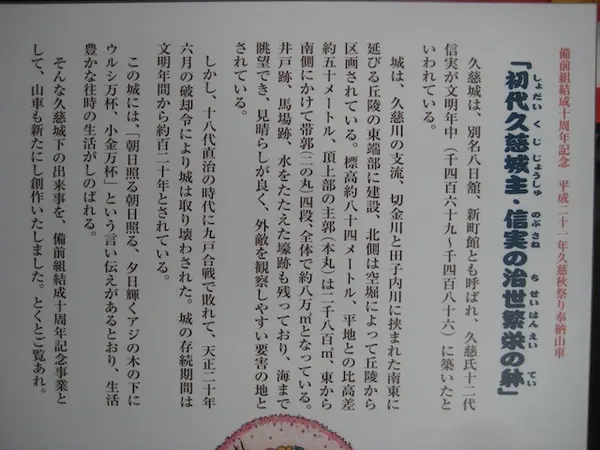 備前組結成十周年記念　平成二十一年久慈秋祭り奉納山車
「初代久慈城主・信実の治世繁栄の躰」
しょだい くじ じょうしゅ のぶざね ちせいはんえい てい
久慈城は、別名八日館、新町館とも呼ばれ、久慈氏十二代
信実が文明年中（千四百六十九～千四百八十六）に築いたと
いわれている。
城は、久慈川の支流、切金川と田子内川に挟まれた南東に
延びる丘陵の東端部に建設、北側は空堀によって丘陵から
区画されている。標高約八十四メートル、平地との比高差
約五十メートル、頂上部の主郭（本丸）は二千八百㎡、東から
南側にかけて帯郭（三の丸）四段、全体で約八万㎡となっている。
井戸跡、馬場跡、水をたたえた壕跡も残っており、海まで
眺望でき、見晴らしが良く、外敵を観察しやすい要害の地と
されている。
しかし、十八代直治の時代に九戸合戦で敗れて、天正二十年
六月の破却令により城は取り壊された。城の存続期間は
文明年間から約百二十年とされている。
この城には、「朝日照る朝日照る、夕日輝くアジの木の下に
ウルシ万杯、小金万杯」という言い伝えがあるとおり、生活
豊かな往時の生活がしのばれる。
そんな久慈城下の出来事を、備前組結成十周年記念事業と
して、山車も新たにし創作いたしました。とくとご覧あれ。